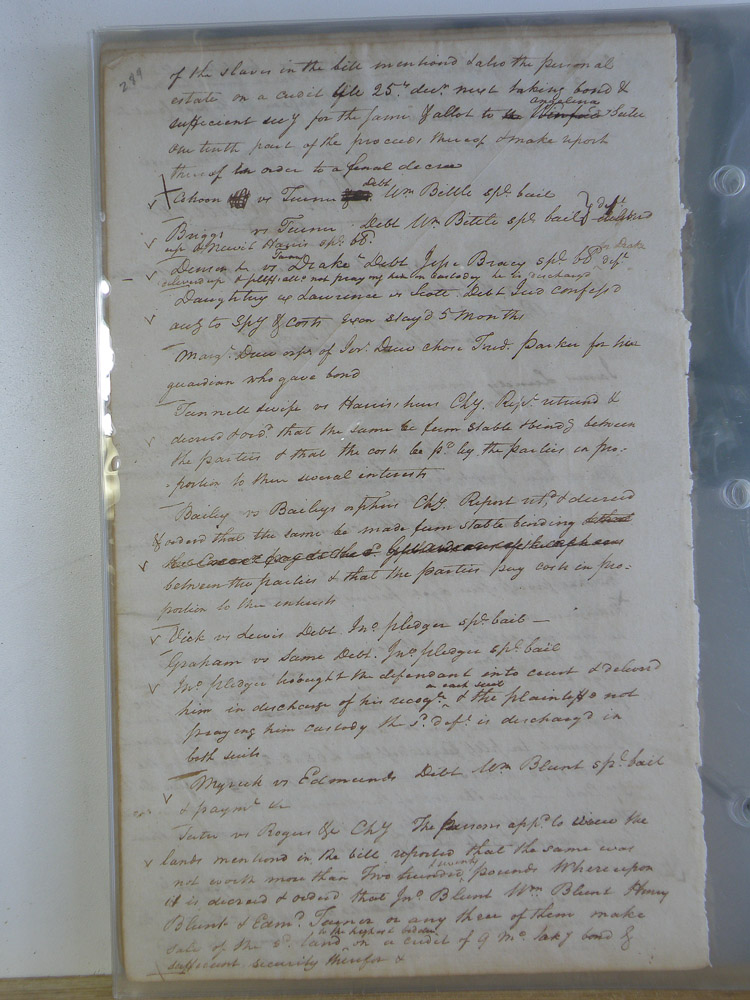 289
of the slaves in the bill mentiond & also the personal
estate on a credit till 25th decr. next taking bond &
sufficient secy for the same & allot to Angelina
one tenth part of the proceeds thereof & make report
thereof in order to a final decree
vs Turner Debt Wm Bittle spl. bail
Briggs vs Turner Debt Wm Bittle spl bail
up Newit Harris spl. bl.
vs Drake Debt Jesse Bracy spl bl
deliverd up & pltfs atto not praying him in custody he is dischargd
Daughtry vs Lawrence & Scott Debt Jud confessd
accg to Spy & Costs Exon stayd 5 months
Margt. Drew orp of Jer. Drew chose Fred. Parker for her
guardian who gave bond
Tunnell & wife vs Harris's heirs Chy. Rept. returnd &
decreed & ordd. that the same be firm stable & bindg between
the parties & that the costs be pd by the parties in pro-
-portion to their several interests
Bailey vs Baileys orphans Chy. Report retd. & decreed
& orderd that the same be made firm stable binding
between the parties & that the parties pay costs in pro-
portion to their interests
Vick vs Lewis Debt Jno. Pledger spl. bail
Graham vs Same Debt. Jno Pledger spl bail
Jno Pledger brought the defendant into court & deliverd
him in discharge of his recogce. in each suit & the plaintiffs not
praying him custody the sd. deft. is dischargd in
both suits
Myrick vs Edmunds Debt Wm Blunt spl. bail
& paymt. &c
vs Rogers &c Chy The persons appd. to view the
lands mentiond in the bill reported that the same was
not worth more than Two hundred & seventy pounds Whereupon
it is decreed & orderd that Jno. Blunt Wm Blunt Henry
Blunt & Edmd. Turner or any three of them make
sale of the sd. land to the highest bidder on a credit of 9 mo. takg bond &
sufficient security therefor &